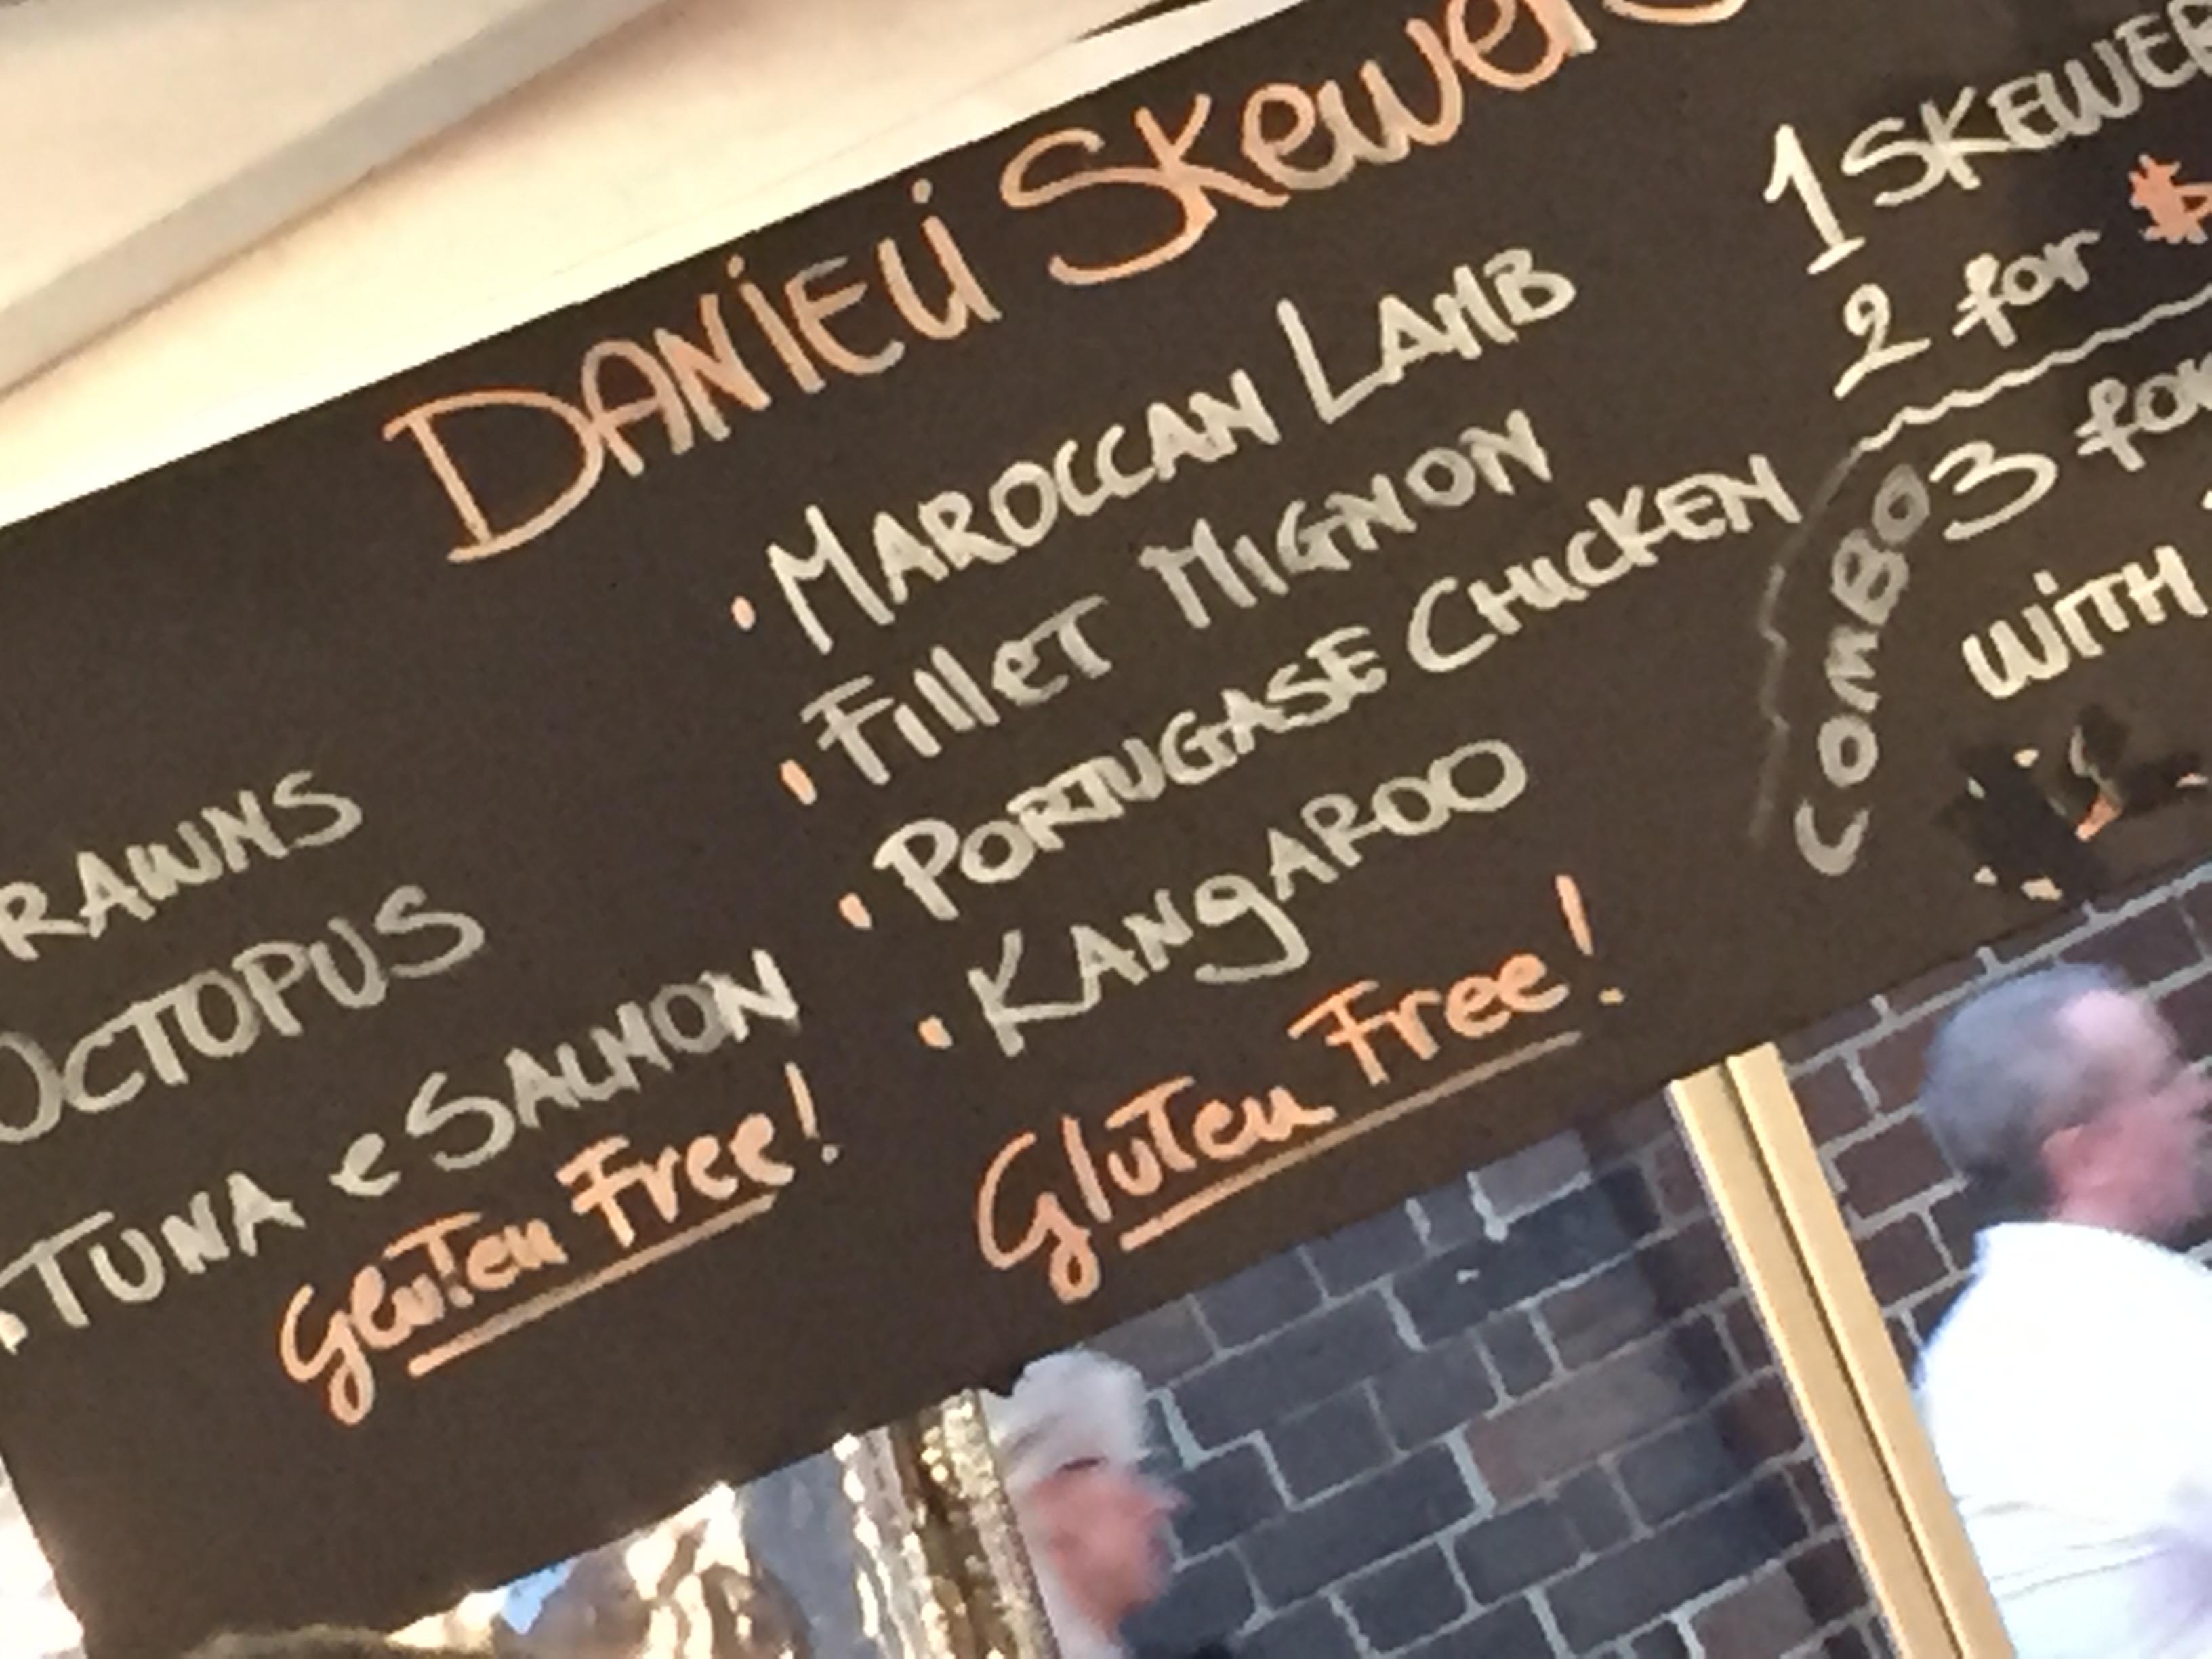 DANiELi Skewers
RAWNS
OCTOPUS
TUNA e SALMON
Gluten Free!
• MAROCCAN LAMB
• FilleT MIGNON
• PORTUGASE CHICKEN
• KANgAROO
Gluten Free!
1 SKEWER
2 for $
COMBO
3 for
WiTH